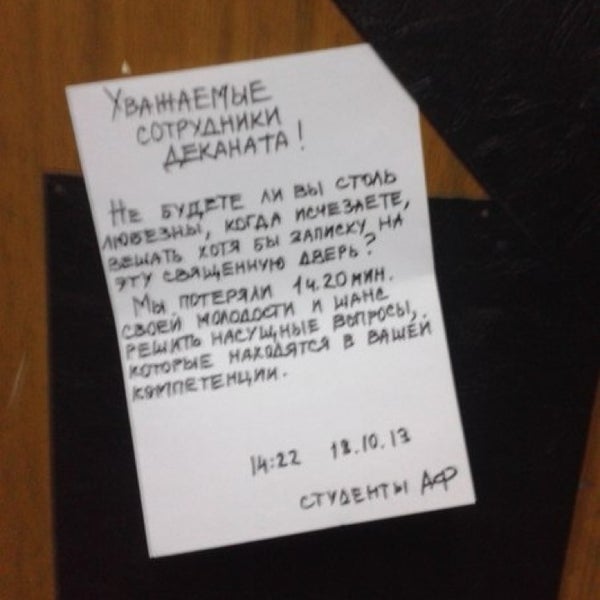 Уважаемые
сотрудники
деканата!
Не будете ли вы столь
любезны, когда исчезаете,
вешать хотя бы записку на
эту священную дверь?
Мы потеряли 1ч.20мин.
своей молодости и шанс
решить насущные вопросы,
которые находятся в вашей
компетенции.
14:22 18.10.13
студенты АФ